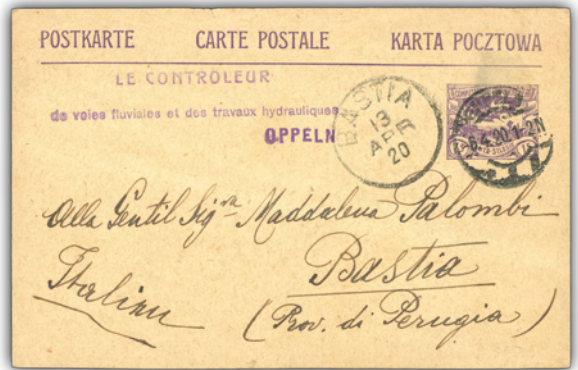 POSTKARTE CARTE POSTALE KARTA POCZTOWA
LE CONTRÔLEUR
de voies fluviales et des travaux hydrauliques
OPPELN
BASTIA
13
APR
20
6.4.20.1-2N
Alla Gentil Sigra Maddalena Palombi
Bastia
Italien (Prov. di Perugia)